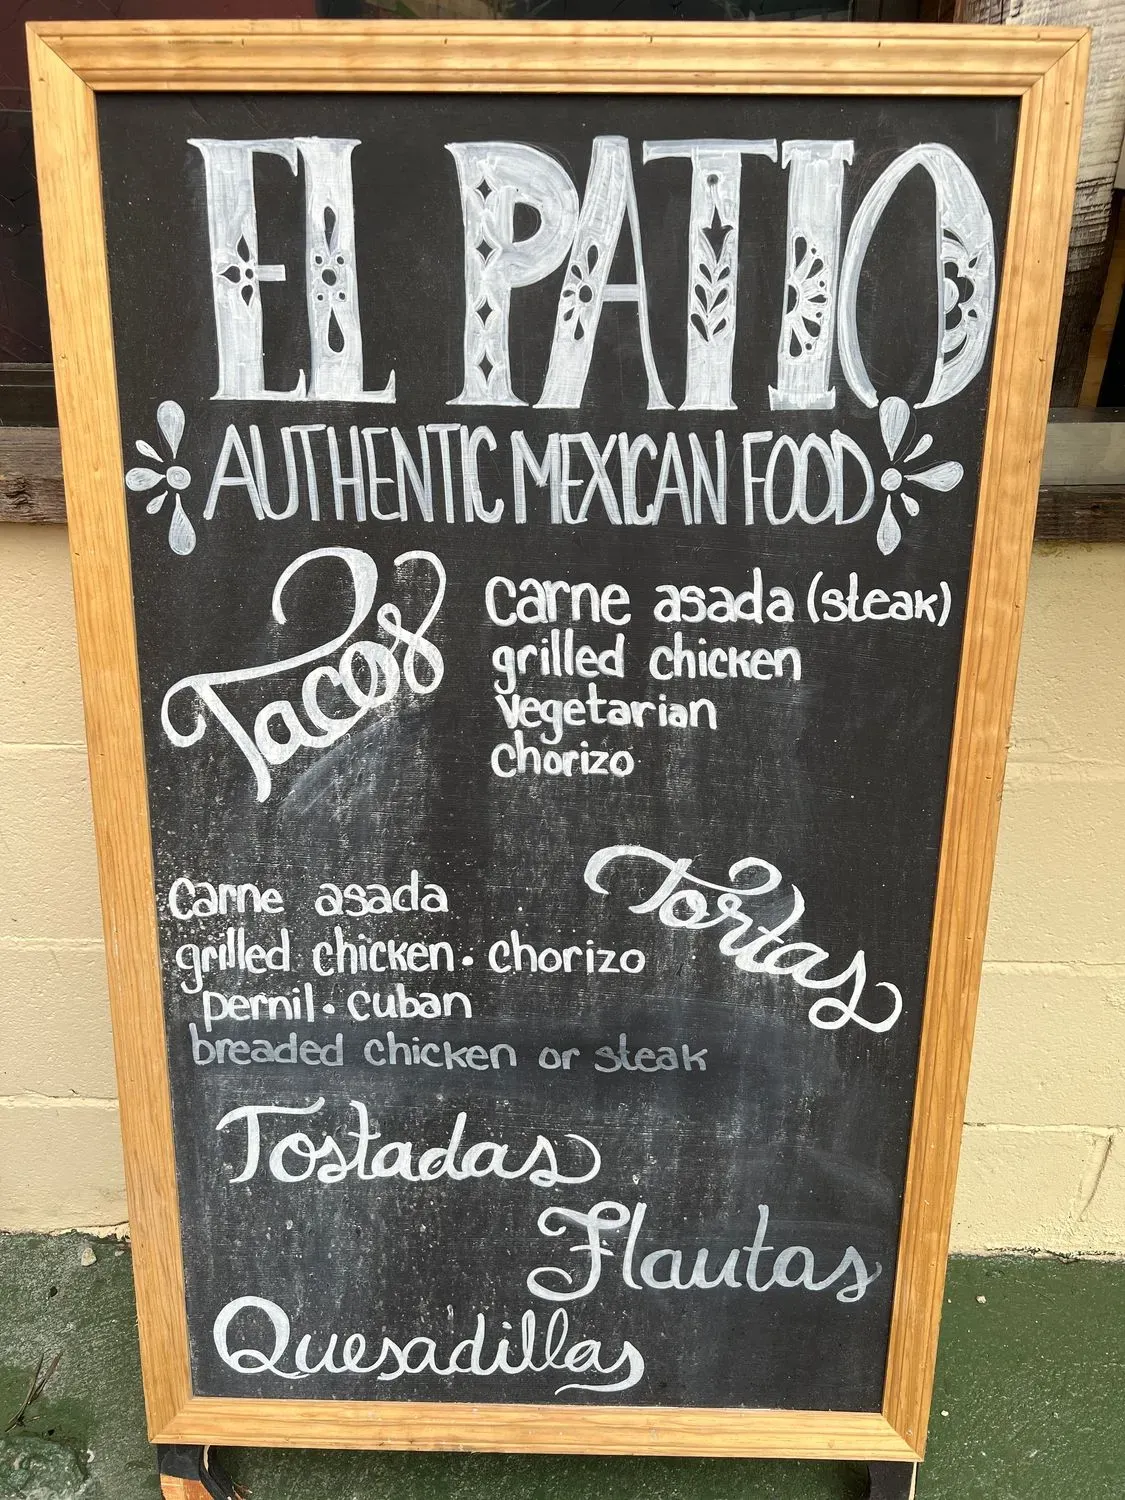 EL PATIO
AUTHENTIC MEXICAN FOOD
Tacos
carne asada (steak)
grilled chicken
vegetarian
chorizo
Tortas
carne asada
grilled chicken · chorizo
pernil · cuban
breaded chicken or steak
Tostadas
Flautas
Quesadillas